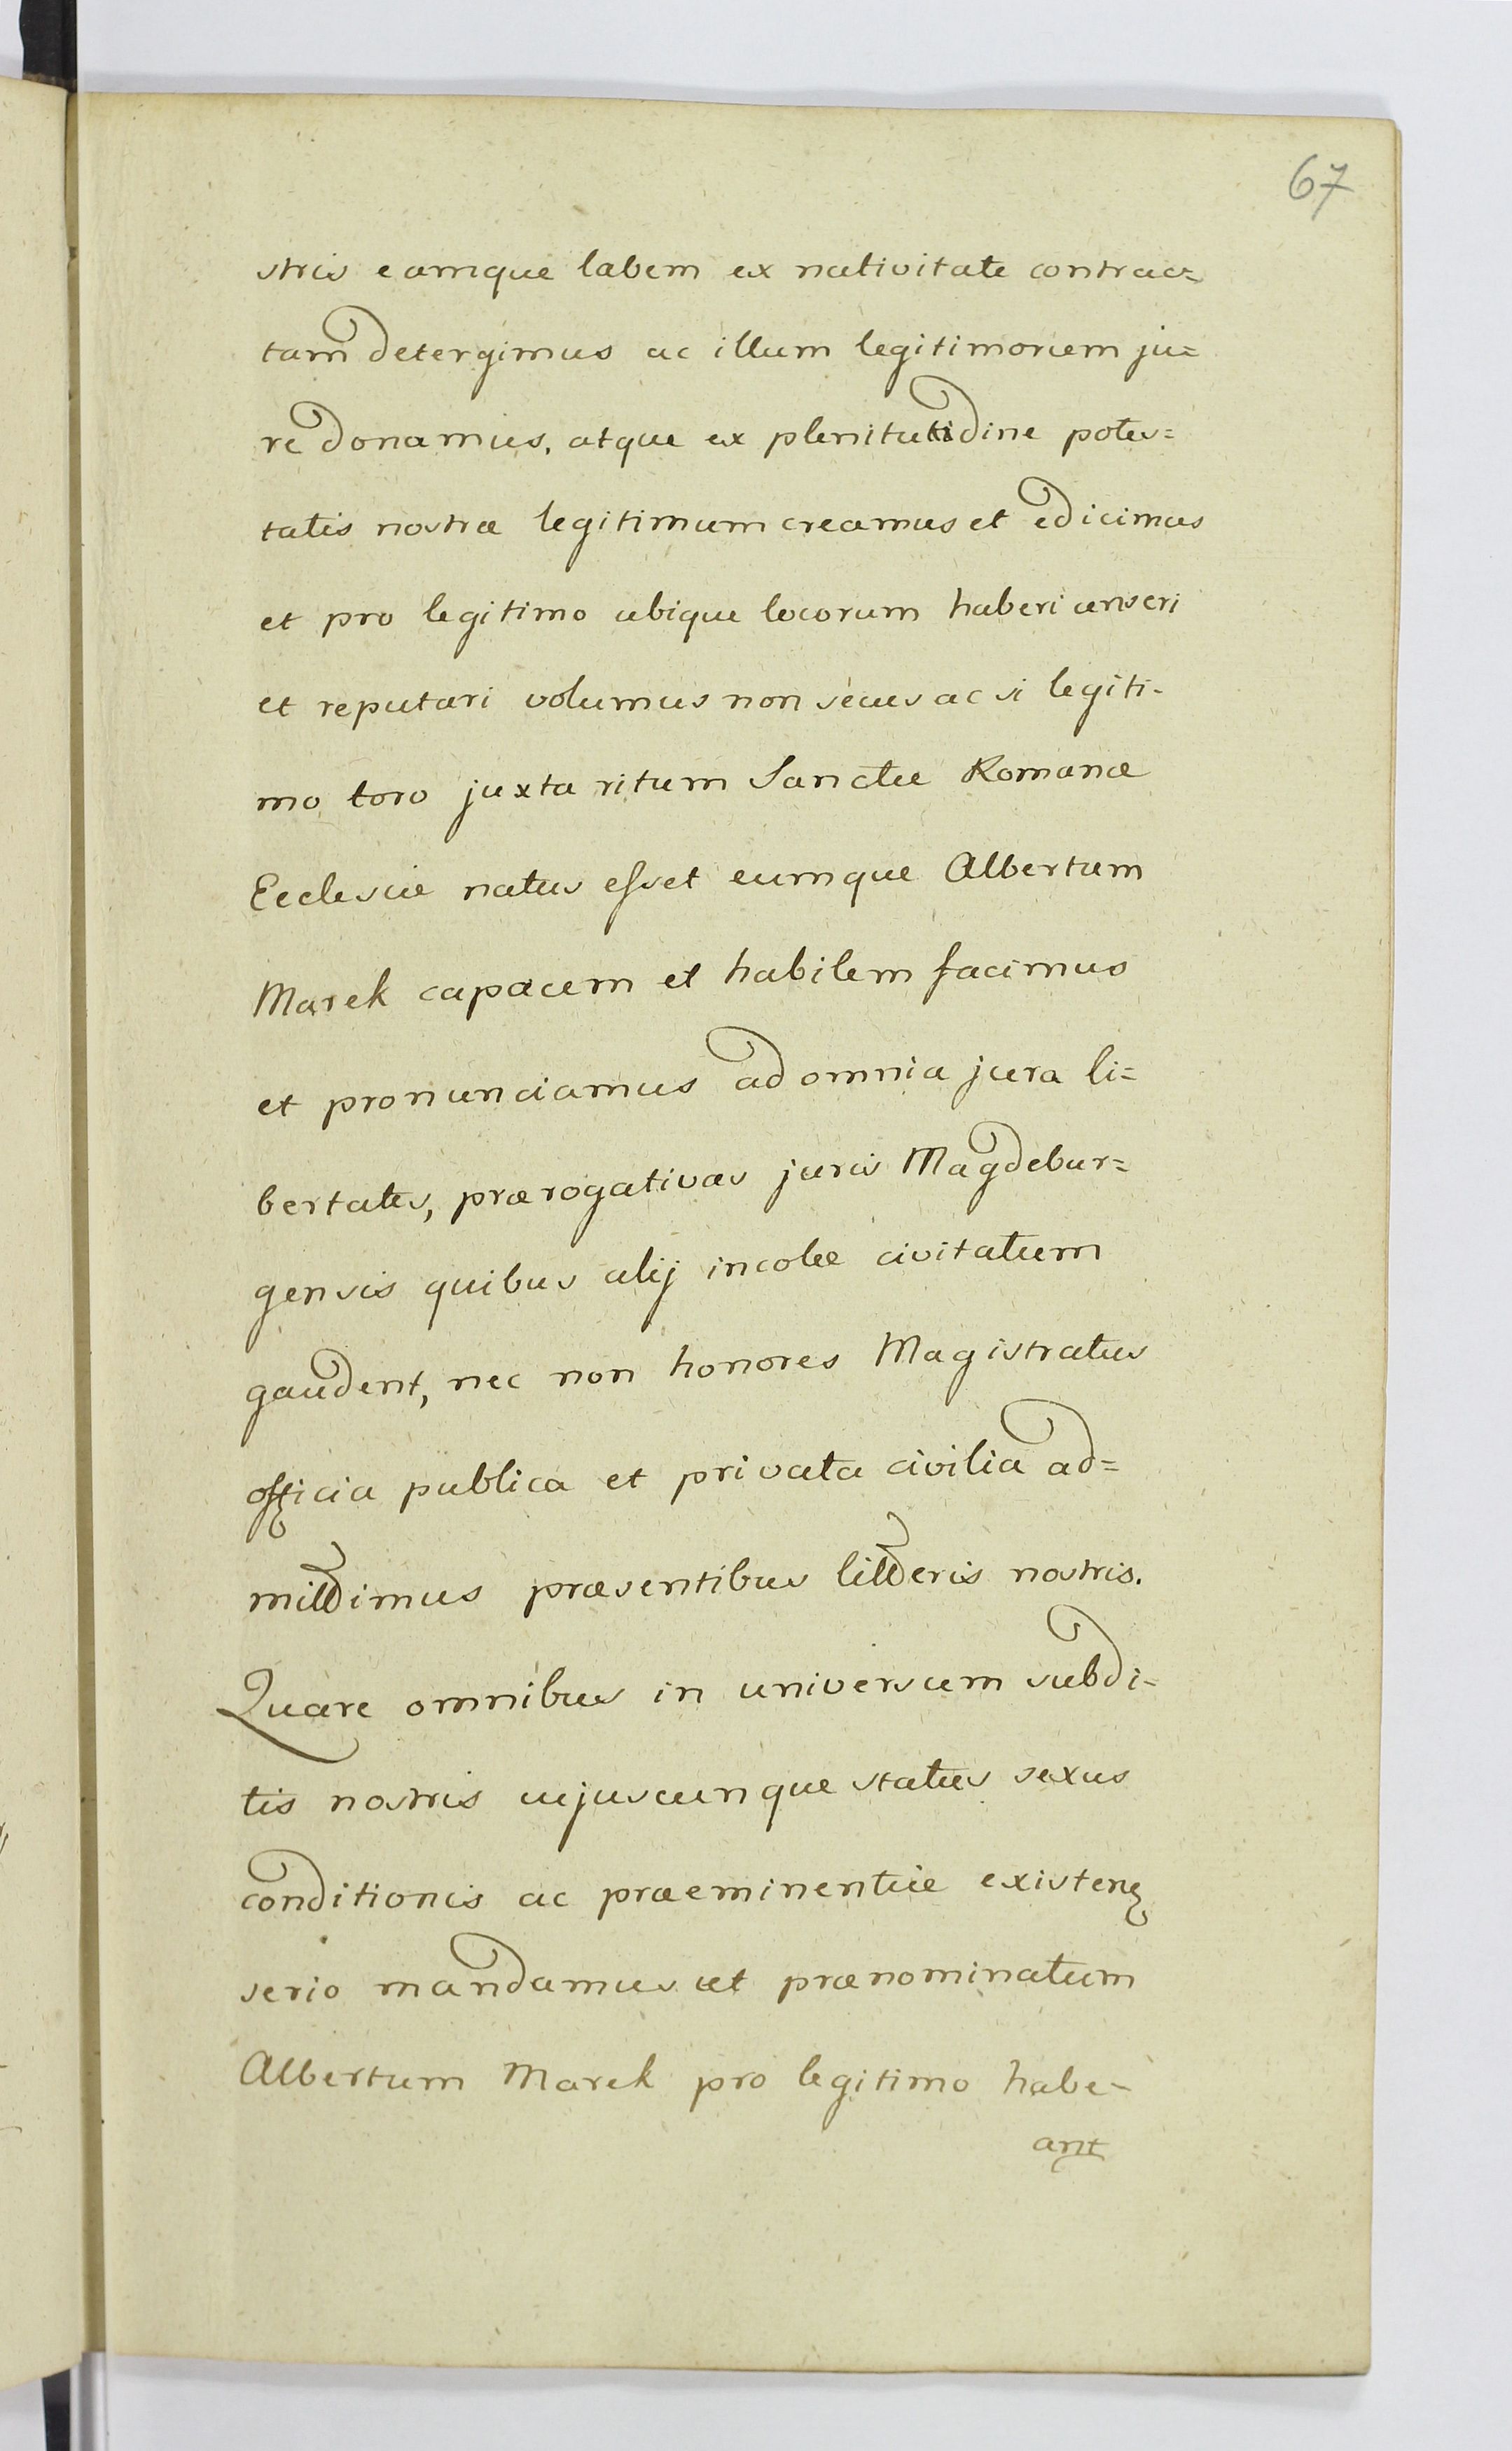 67
stris eamque labem ex nativitate contrac=
tam detergimus ac illum legitimorum ju=
re donamus, atque ex plenitutidine potes=
tatis nostræ legitimum creamus et edicimus
et pro legitimo ubique locorum haberi censeri
et reputari volumus non secus ac si legiti-
mo toro juxta ritum Sanctæ Romanæ
Ecclesiæ natus esset eumque Albertum
Marek capacem et habilem facimus
et pronunciamus ad omnia jura li=
bertates, prærogativas juris Magdebur=
gensis quibus alij incolæ civitatum
gaudent, nec non honores Magistratus
officia publica et privata civilia ad=
mittimus præsentibus litteris nostris.
Quare omnibus in universum subdi=
tis nostris cujuscunque status sexus
conditionis ac præeminentiæ existen
serio mandamus ut prænominatum
Albertum Marek pro legitimo habe-
ant